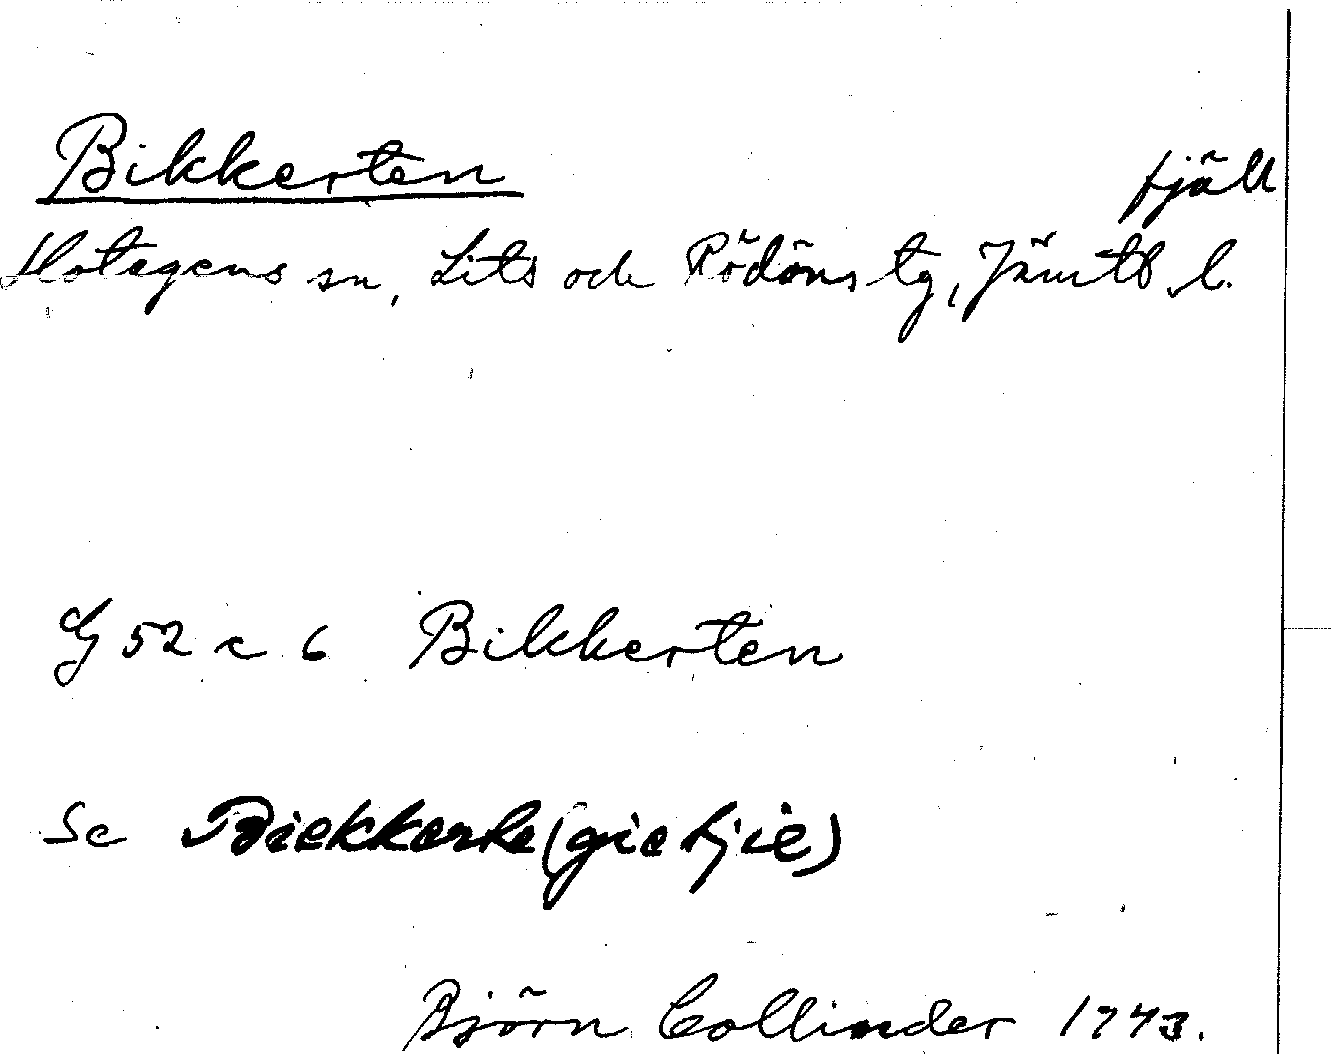 Bikkerten fjäll
Hotagens sn, Lits och Rödöns tg, Jämtl. l.
G 52 c 6 Bikkerten
Se Biekkerte (giefjie)
Björn Collinder 1943.